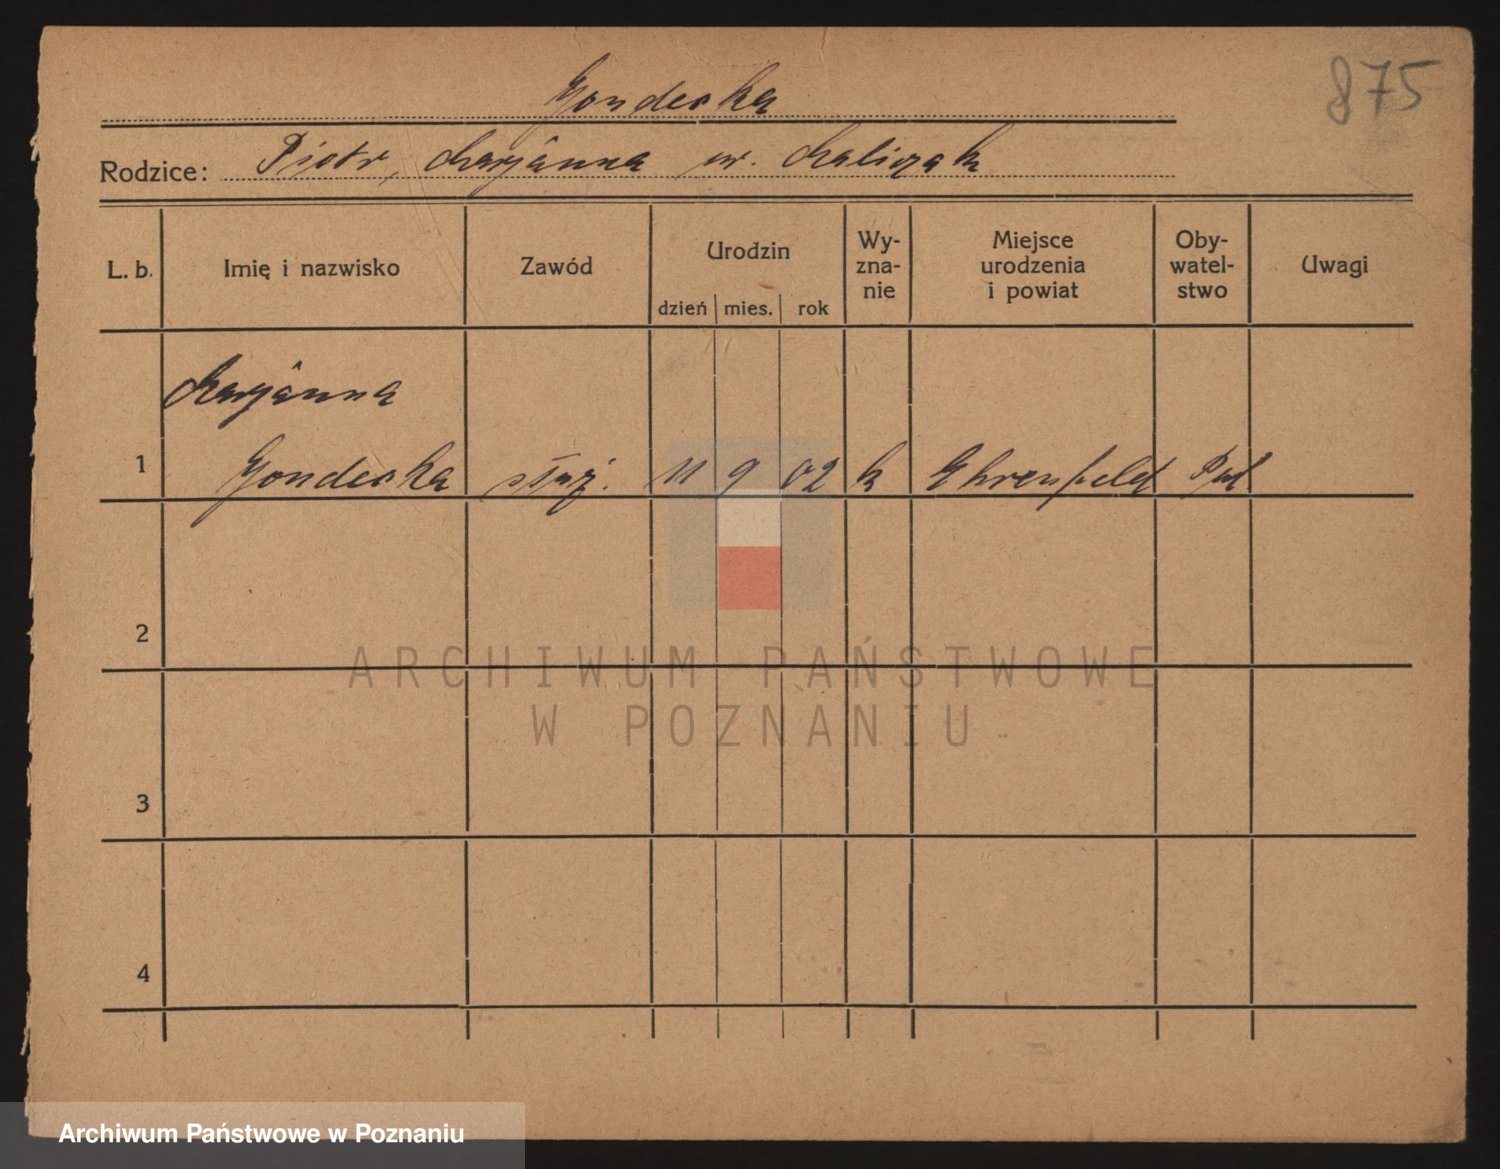 875
Gonderka
Rodzice: Piotr, Maryanna ur. Maliczak
L. b. Imię i nazwisko Zawód Urodzin dzień mies. rok Wy-zna-nie Miejsce urodzenia i powiat Oby-watel-stwo Uwagi
Maryanna
1 Gonderka służ. 11 9 02 k Ehrenfeld Pol
2
ARCHIWUM PAŃSTWOWE
W POZNANIU
3
4
Archiwum Państwowe w Poznaniu